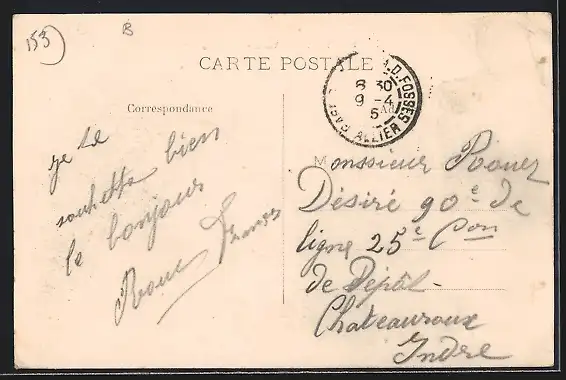 153)
B
CARTE POSTALE
8 30
9 - 4
5
PARIS ALLIER FOSSES
Correspondance
Ad
je te
souhette bien
le bonjour
Monsieur
Désiré 90e de
ligne 25e Con
de Dépôt -
Chateauroux
Indre